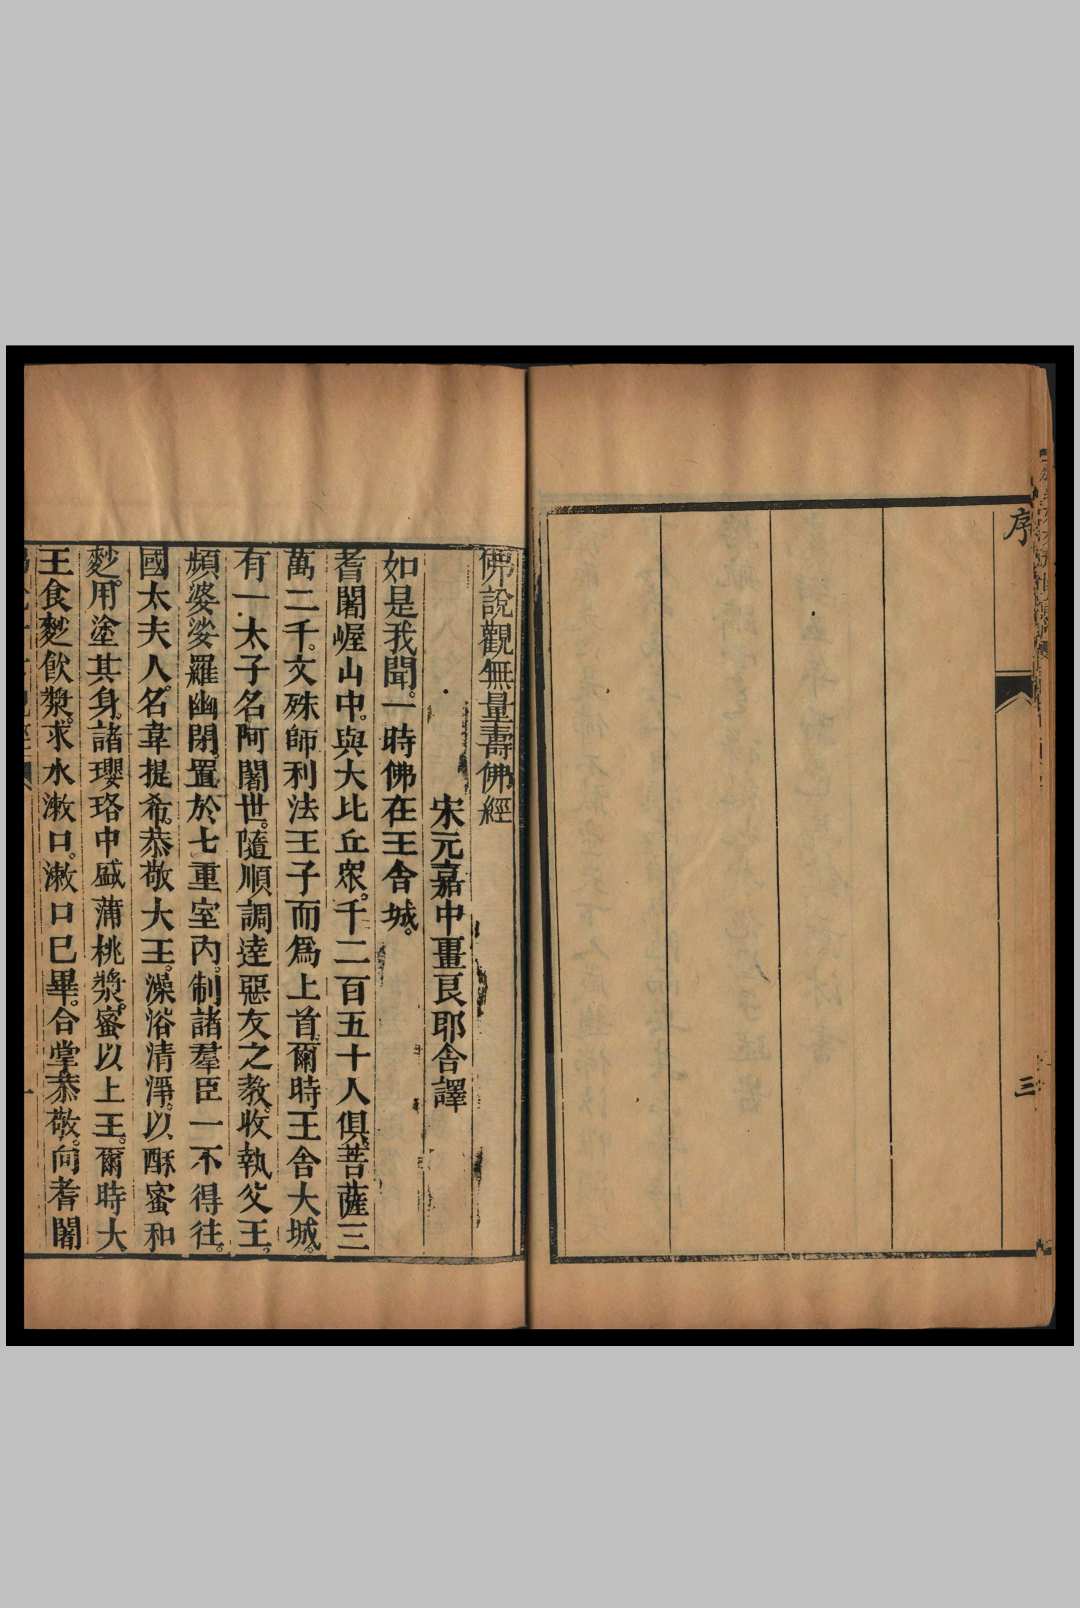 序
三
佛說觀無量壽佛經
宋元嘉中畺良耶舍譯
如是我聞。一時佛在王舍城。
耆闍崛山中。與大比丘衆。千二百五十人俱。菩薩三
萬二千。文殊師利法王子而爲上首。爾時王舍大城。
有一太子名阿闍世。隨順調達惡友之教。收執父王。
頻婆娑羅幽閉。置於七重室內。制諸羣臣一不得往。
國太夫人。名韋提希。恭敬大王。澡浴清淨。以酥蜜和
麨。用塗其身。諸瓔珞中盛蒲桃漿。蜜以上王。爾時大
王食麨飲漿。求水漱口。漱口巳畢。合掌恭敬。向耆闍